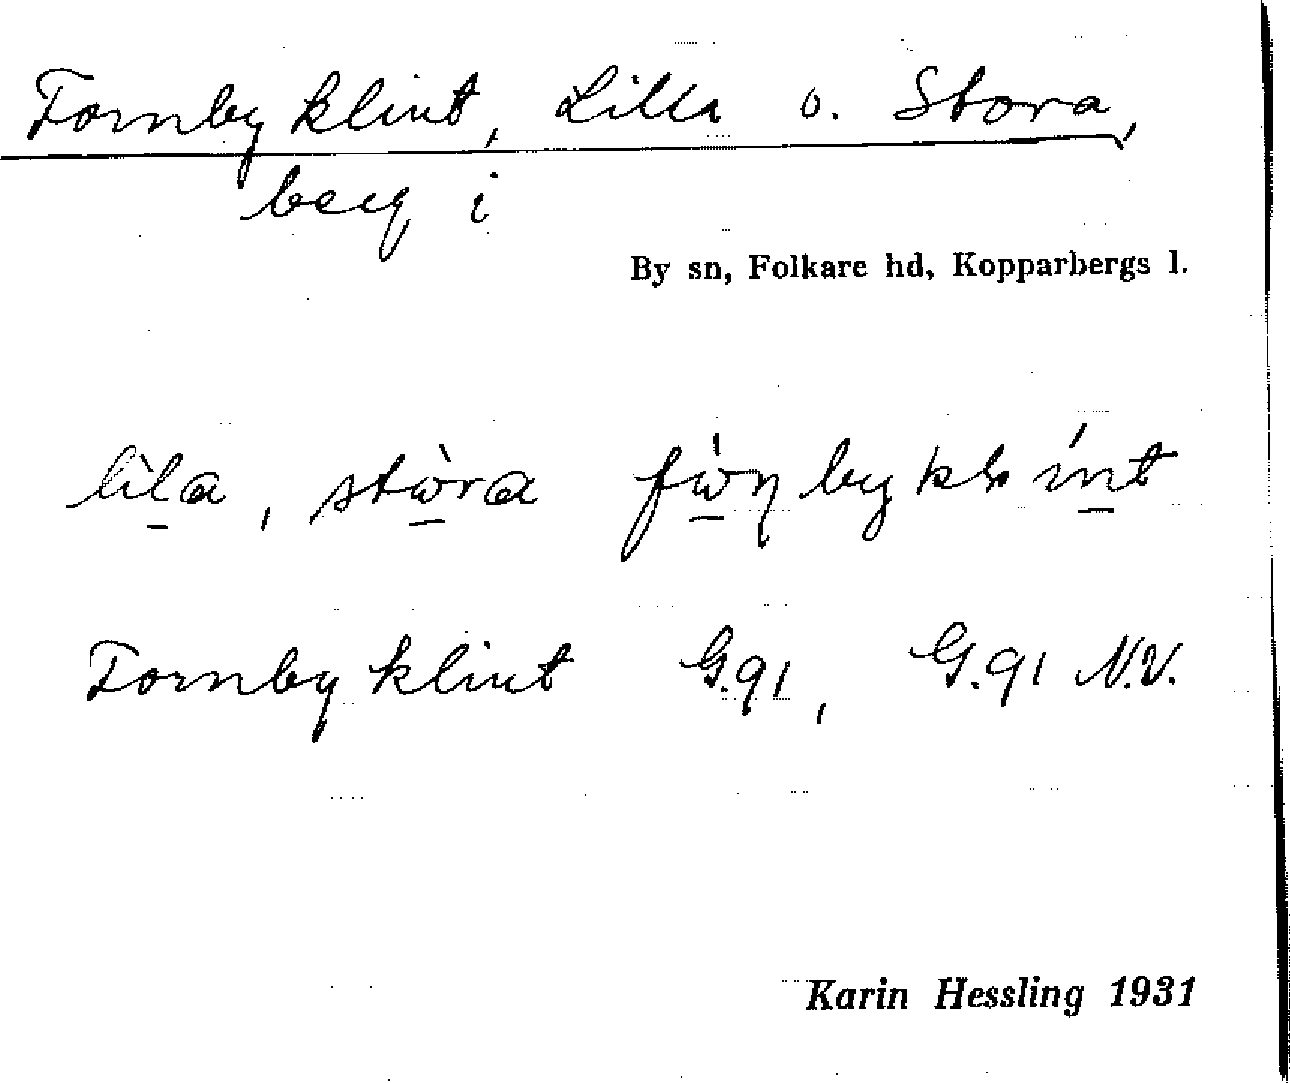 Fornby klint, Lilla o. Stora,
berg i
By sn, Folkare hd, Kopparbergs l.
lìla, stòra
Fornby klint G.91, G.91 N.V.
Karin Hessling 1931